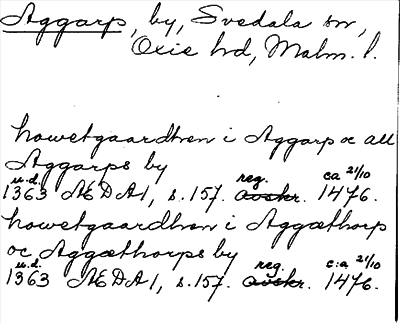 Aggarp, by, Svedala sn,
Oxie hd, Malm. l.
howetgaardhen i Aggarp oc all
Aggarps by
u.d. reg. ca 21/10
1363 ÆDA1, s. 157. avskr. 1476.
howetgaardhen i Aggæthorp
oc Aggæthorps by
u.d. reg. c:a 21/10
1363 ÆDA1, s. 157. avskr. 1476.